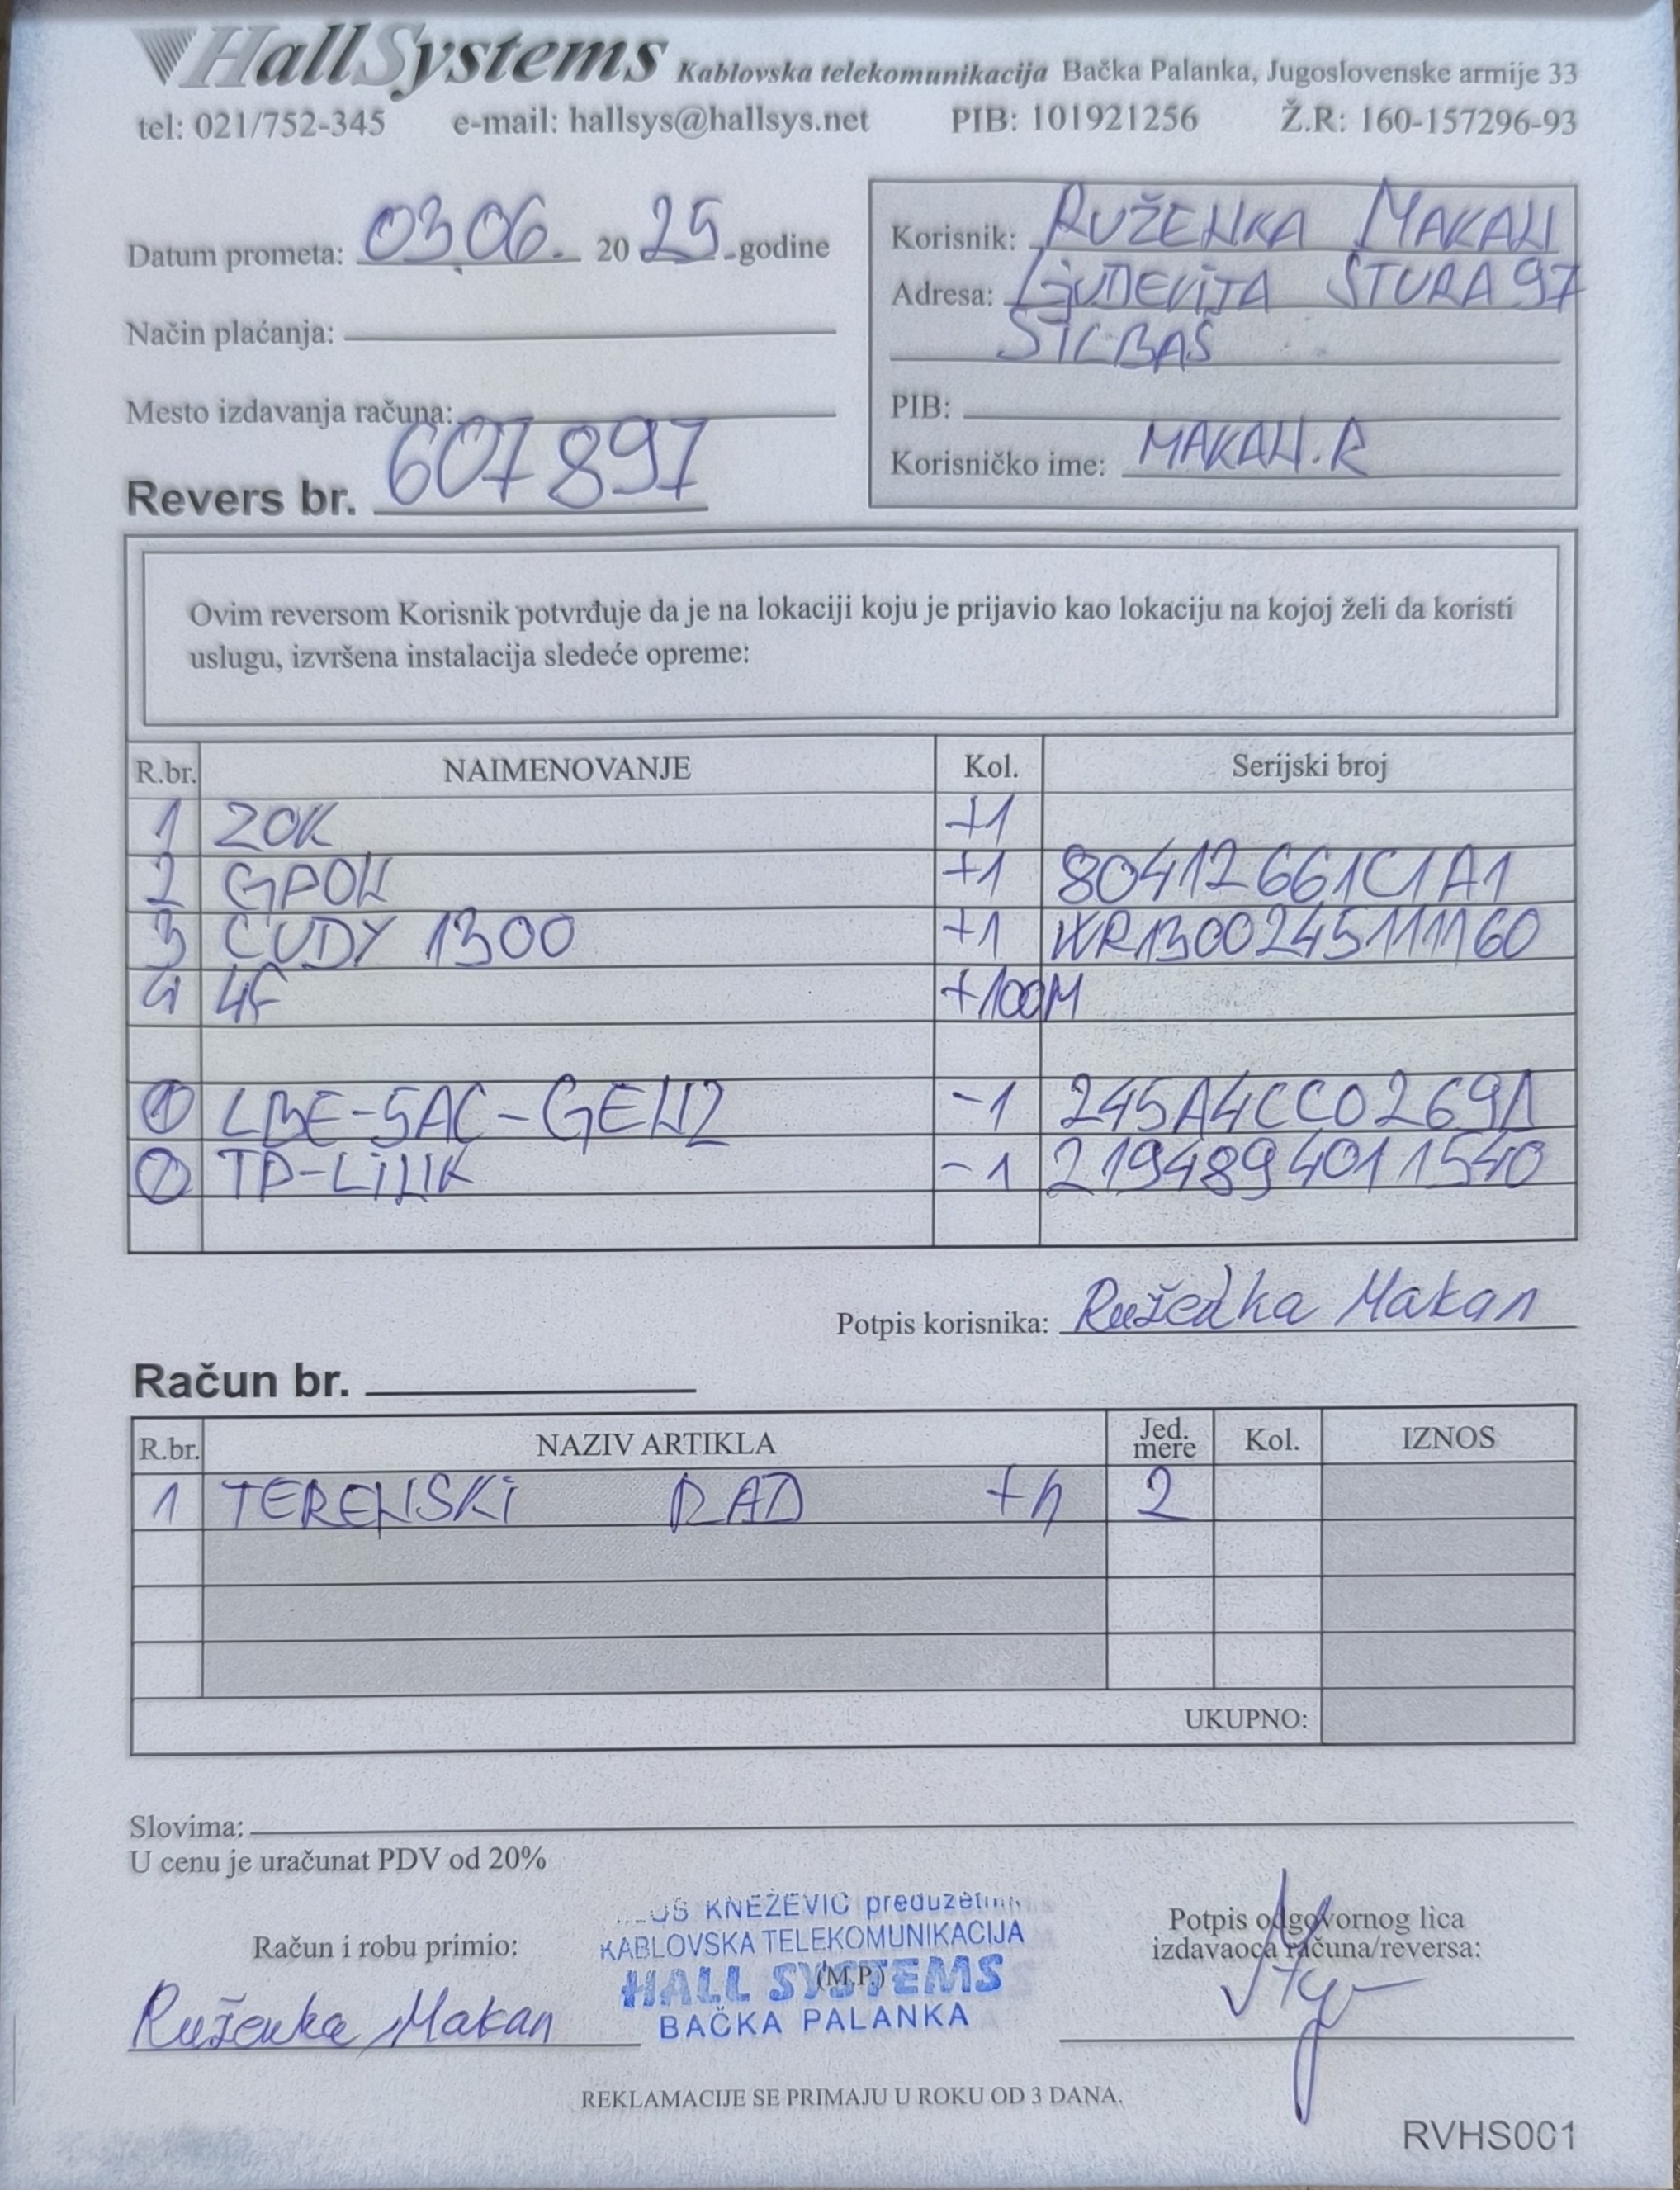 HallSystems Kablovska telekomunikacija Bačka Palanka, Jugoslovenske armije 33
tel: 021/752-345 e-mail: hallsys@hallsys.net PIB: 101921256 Ž.R: 160-157296-93
Datum prometa: 03.06. 2025.godine
Način plaćanja:
Mesto izdavanja računa:
Revers br. 607897
Korisnik: RUŽENKA MAKAN
Adresa: LJUDEVITA ŠTURA 97
SILBAŠ
PIB:
Korisničko ime: MAKAN.R
Ovim reversom Korisnik potvrđuje da je na lokaciji koju je prijavio kao lokaciju na kojoj želi da koristi
uslugu, izvršena instalacija sledeće opreme:
R.br. NAIMENOVANJE Kol. Serijski broj
1 ZOK +1
2 GPON +1 80412661C1A1
3 CUDY 1300 +1 WR1300245111160
4 4F +100M
1 LBE-5AC-GEN2 -1 245A4CC0269A
2 TP-LINK -1 2194894011540
Potpis korisnika: Ruženka Makan
Račun br.
R.br. NAZIV ARTIKLA Jed. mere Kol. IZNOS
1 TERENSKI RAD +h 2
UKUPNO:
Slovima:
U cenu je uračunat PDV od 20%
Račun i robu primio:
Ruženka Makan
KNEŽEVIĆ
KABLOVSKA TELEKOMUNIKACIJA
HALL SYSTEMS
(M.P.)
BAČKA PALANKA
Potpis odgovornog lica
izdavaoca računa/reversa:
REKLAMACIJE SE PRIMAJU U ROKU OD 3 DANA.
RVHS001